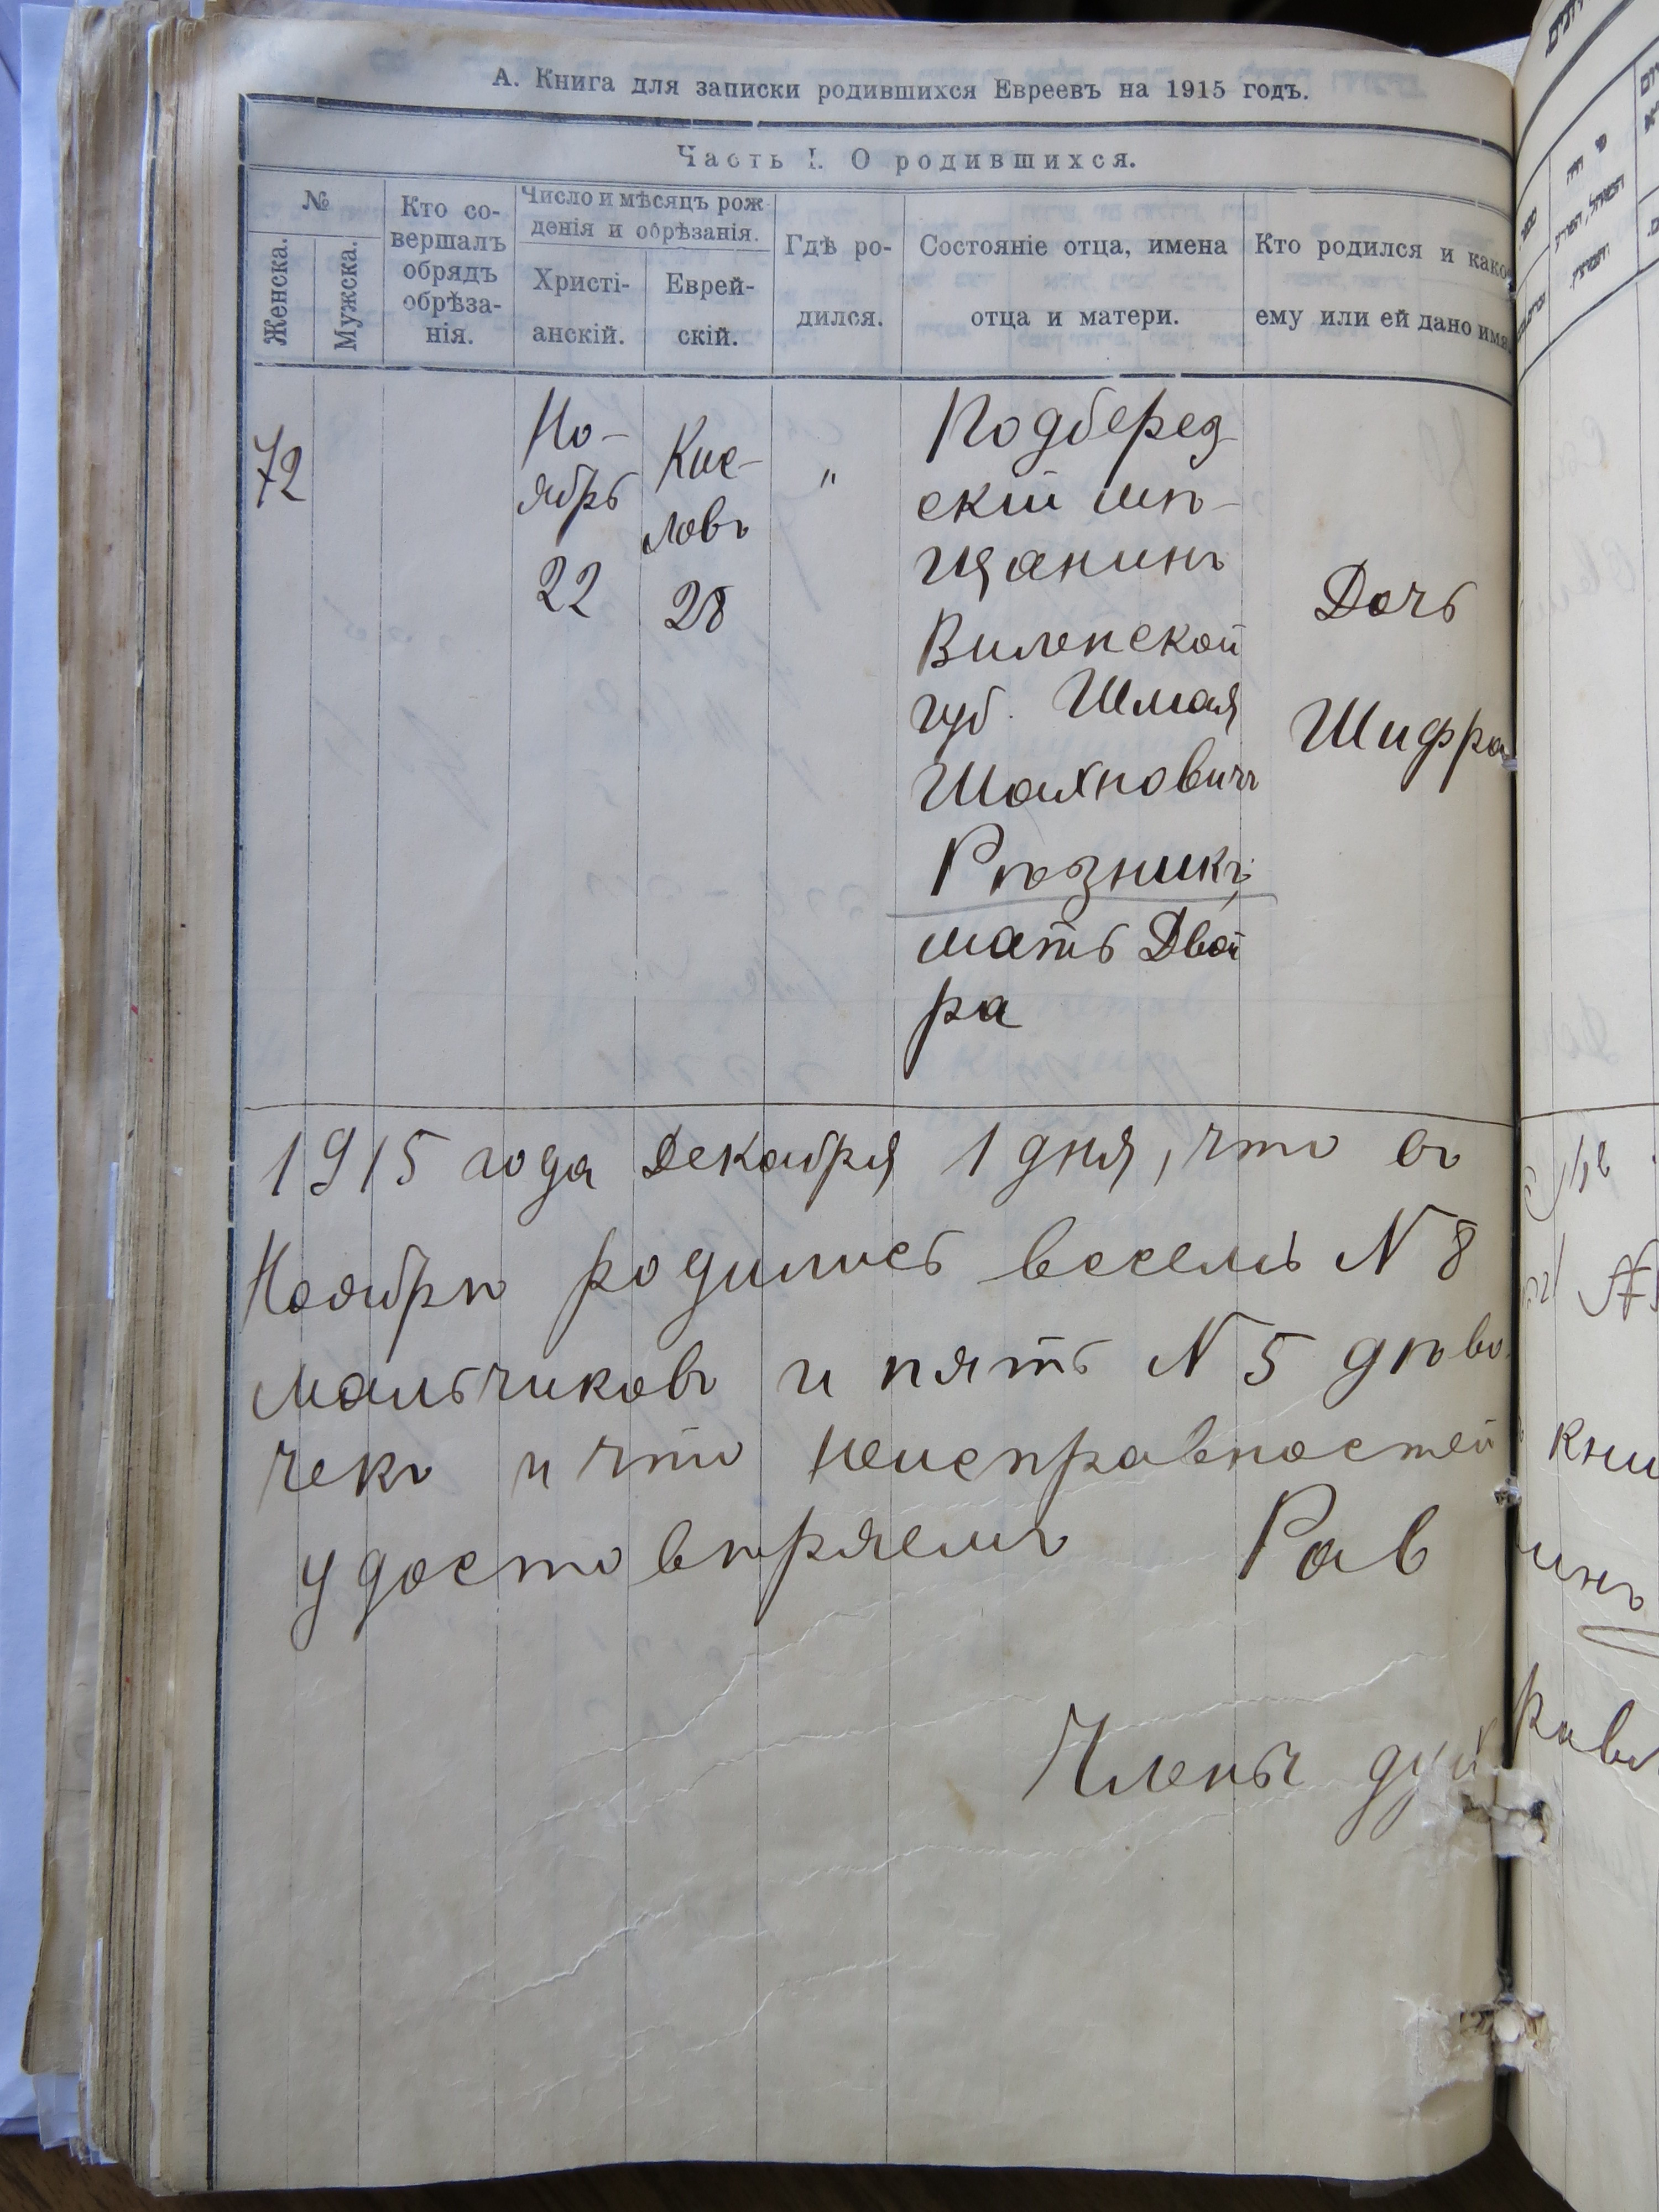 А. Книга для записки родившихся Евреевъ на 1915 годъ.
Часть I. О родившихся.
№
Женска.
Мужска.
Кто со-
вершалъ
обрядъ
обрѣза-
нія.
Число и мѣсяцъ рож-
денія и обрѣзанія.
Христі-
анскій.
Еврей-
скій.
Гдѣ ро-
дился.
Состояніе отца, имена
отца и матери.
Кто родился и како
ему или ей дано имя
72
Но-
ябрь
22
Кис-
ловъ
28
"
Подберез-
скій мѣ-
щанинъ
Виленской
губ. Шмая
Шахновичъ
Рѣзникъ,
мать Двой
ра
Дочь
Шифра
1915 года Декабря 1 дня, что въ
Ноябрѣ родились восемь N 8
мальчиковъ и пять N 5 дѣво-
чекъ и что неисправностей
удостовѣряемъ Рав
Члены дух
кни
инъ
равл